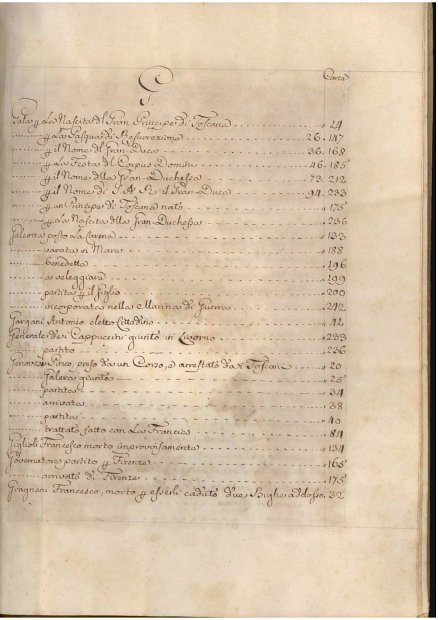 Carte
G.
Gala p La Nascita del Gran Principe di Toscana 24
p La Pasqua di Resurrezione 26. 147
p il Nome del Gran-Duca 36. 168
p La Festa del Corpus Domini 46. 185
p il Nome della Gran-Duchessa 73. 212
p il Nome di S. A. R. il Gran-Duca 94. 233
p un Principe di Toscana nato 175
p La Nascita della Gran-Duchessa 236
Galeotta posto La Carena 133
varata in Mare 188
benedetta 196
a veleggiare 199
partita p il 200
incorporata nella Marina di Guerra 242
Gargani Antonio eletto Cittadino 42
Generale dei Cappuccini giunto in Livorno 233
partito 236
Genovese Pinco, preso da un Corzo, e arrestato da Toscani 20
Galera giunta 25
partita 34
arrivata 38
partita 40
trattato fatto con La Francia 84
Giglioli Francesco morto improvvisamente 134
Governatore partito p Firenze 165
arrivato di Firenze 175
Gragnani Francesco, morto p esserli caduto due Bighe addosso. 32